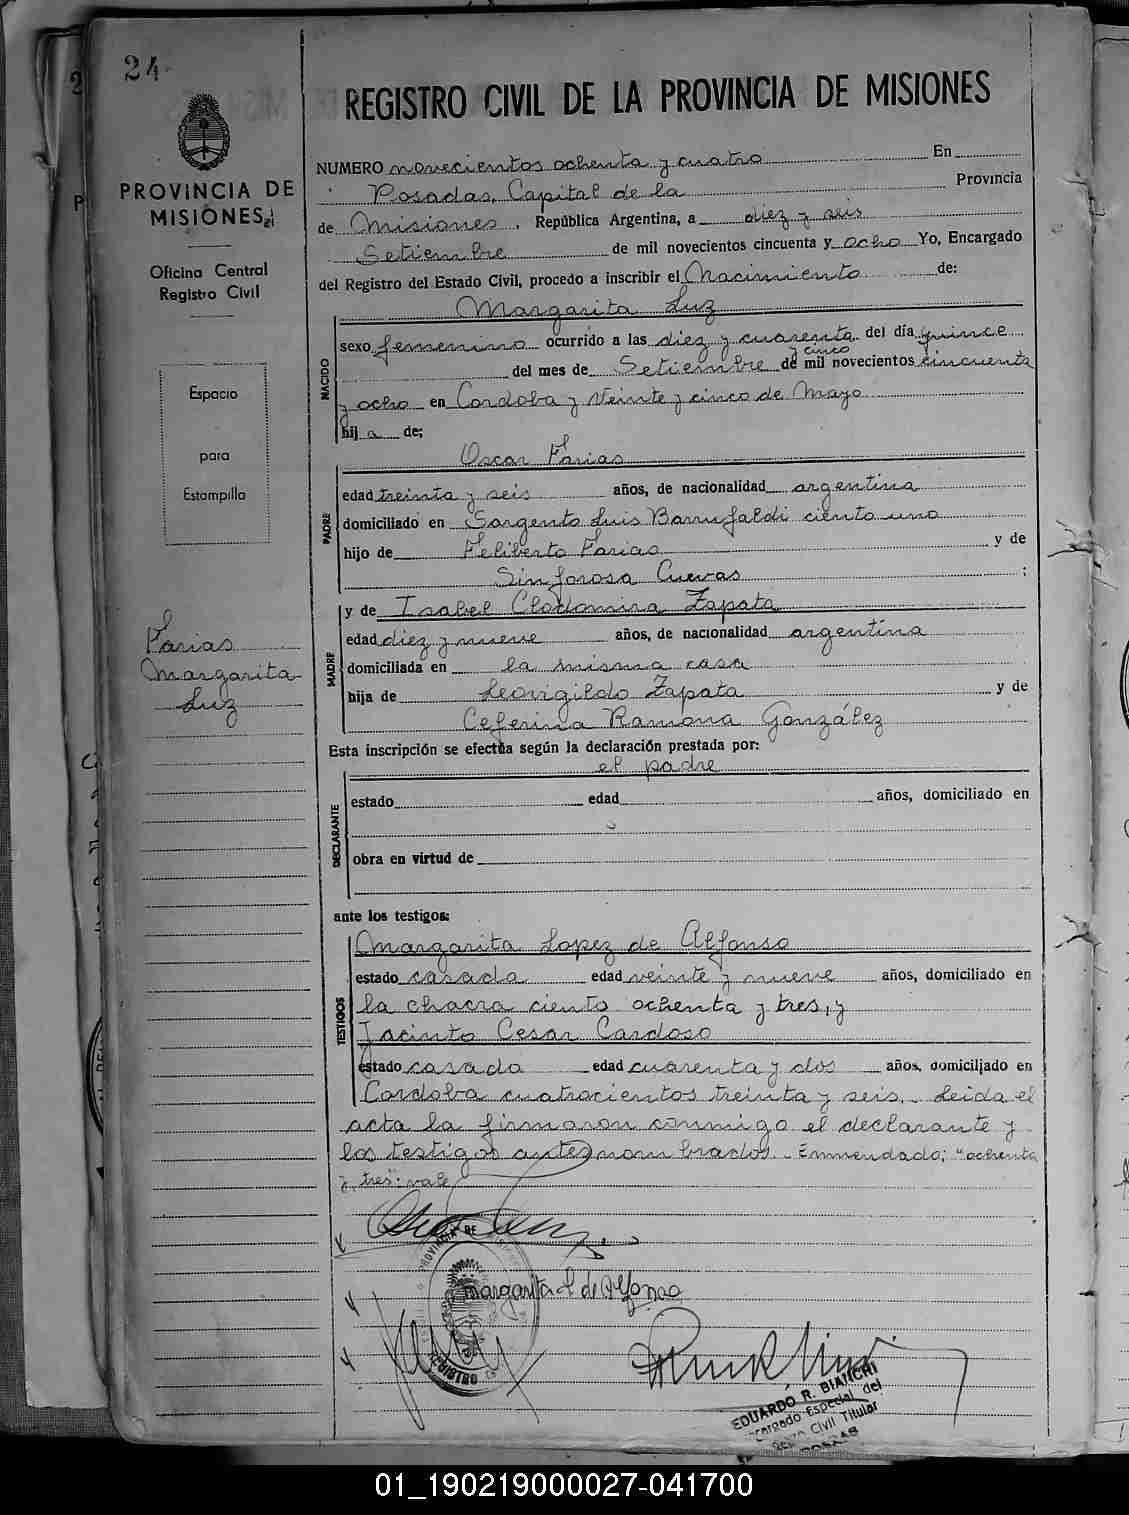 24
REGISTRO CIVIL DE LA PROVINCIA DE MISIONES
PROVINCIA DE
MISIONES
Oficina Central
Registro Civil
Espacio
para
Estampilla
Farias
Margarita
Luz
NUMERO novecientos ochenta y cuatro En
Posadas, Capital de la Provincia
de Misiones, República Argentina, a diez y seis
Setiembre de mil novecientos cincuenta y ocho Yo, Encargado
del Registro del Estado Civil, procedo a inscribir el Nacimiento de:
Margarita Luz
NACIDO
sexo femenino ocurrido a las diez y cuarenta del día quince
y cinco
del mes de Setiembre de mil novecientos cincuenta
y ocho en Cordoba y Veinte y cinco de Mayo
hija de;
Oscar Farias
PADRE
edad treinta y seis años, de nacionalidad argentina
domiciliado en Sargento Luis Barrufaldi ciento uno
hijo de Feliberto Farias y de
Sinforosa Cuevas ;
y de Isabel Clodomira Zapata
MADRE
edad diez y nueve años, de nacionalidad argentina
domiciliada en la misma casa
hija de Leovigildo Zapata y de
Ceferina Ramona González
Esta inscripción se efectúa según la declaración prestada por:
el padre
DECLARANTE
estado edad años, domiciliado en
obra en virtud de
ante los testigos:
TESTIGOS
Margarita Lopez de Alfonso
estado casada edad veinte y nueve años, domiciliado en
la chacra ciento ochenta y tres, y
Jacinto Cesar Cardoso
estado casado edad cuarenta y dos años, domiciliado en
Cordoba cuatrocientos treinta y seis. Leida el
acta la firmaron conmigo el declarante y
los testigos antes nombrados. Enmendado; "ochenta
y tres": vale
PROVINCIA DE
REGISTRO
Margarita L de Alfonso
EDUARDO R. BIANCHI
Encargado Especial del
Reg. Civil Titular
POSADAS
01_190219000027-041700